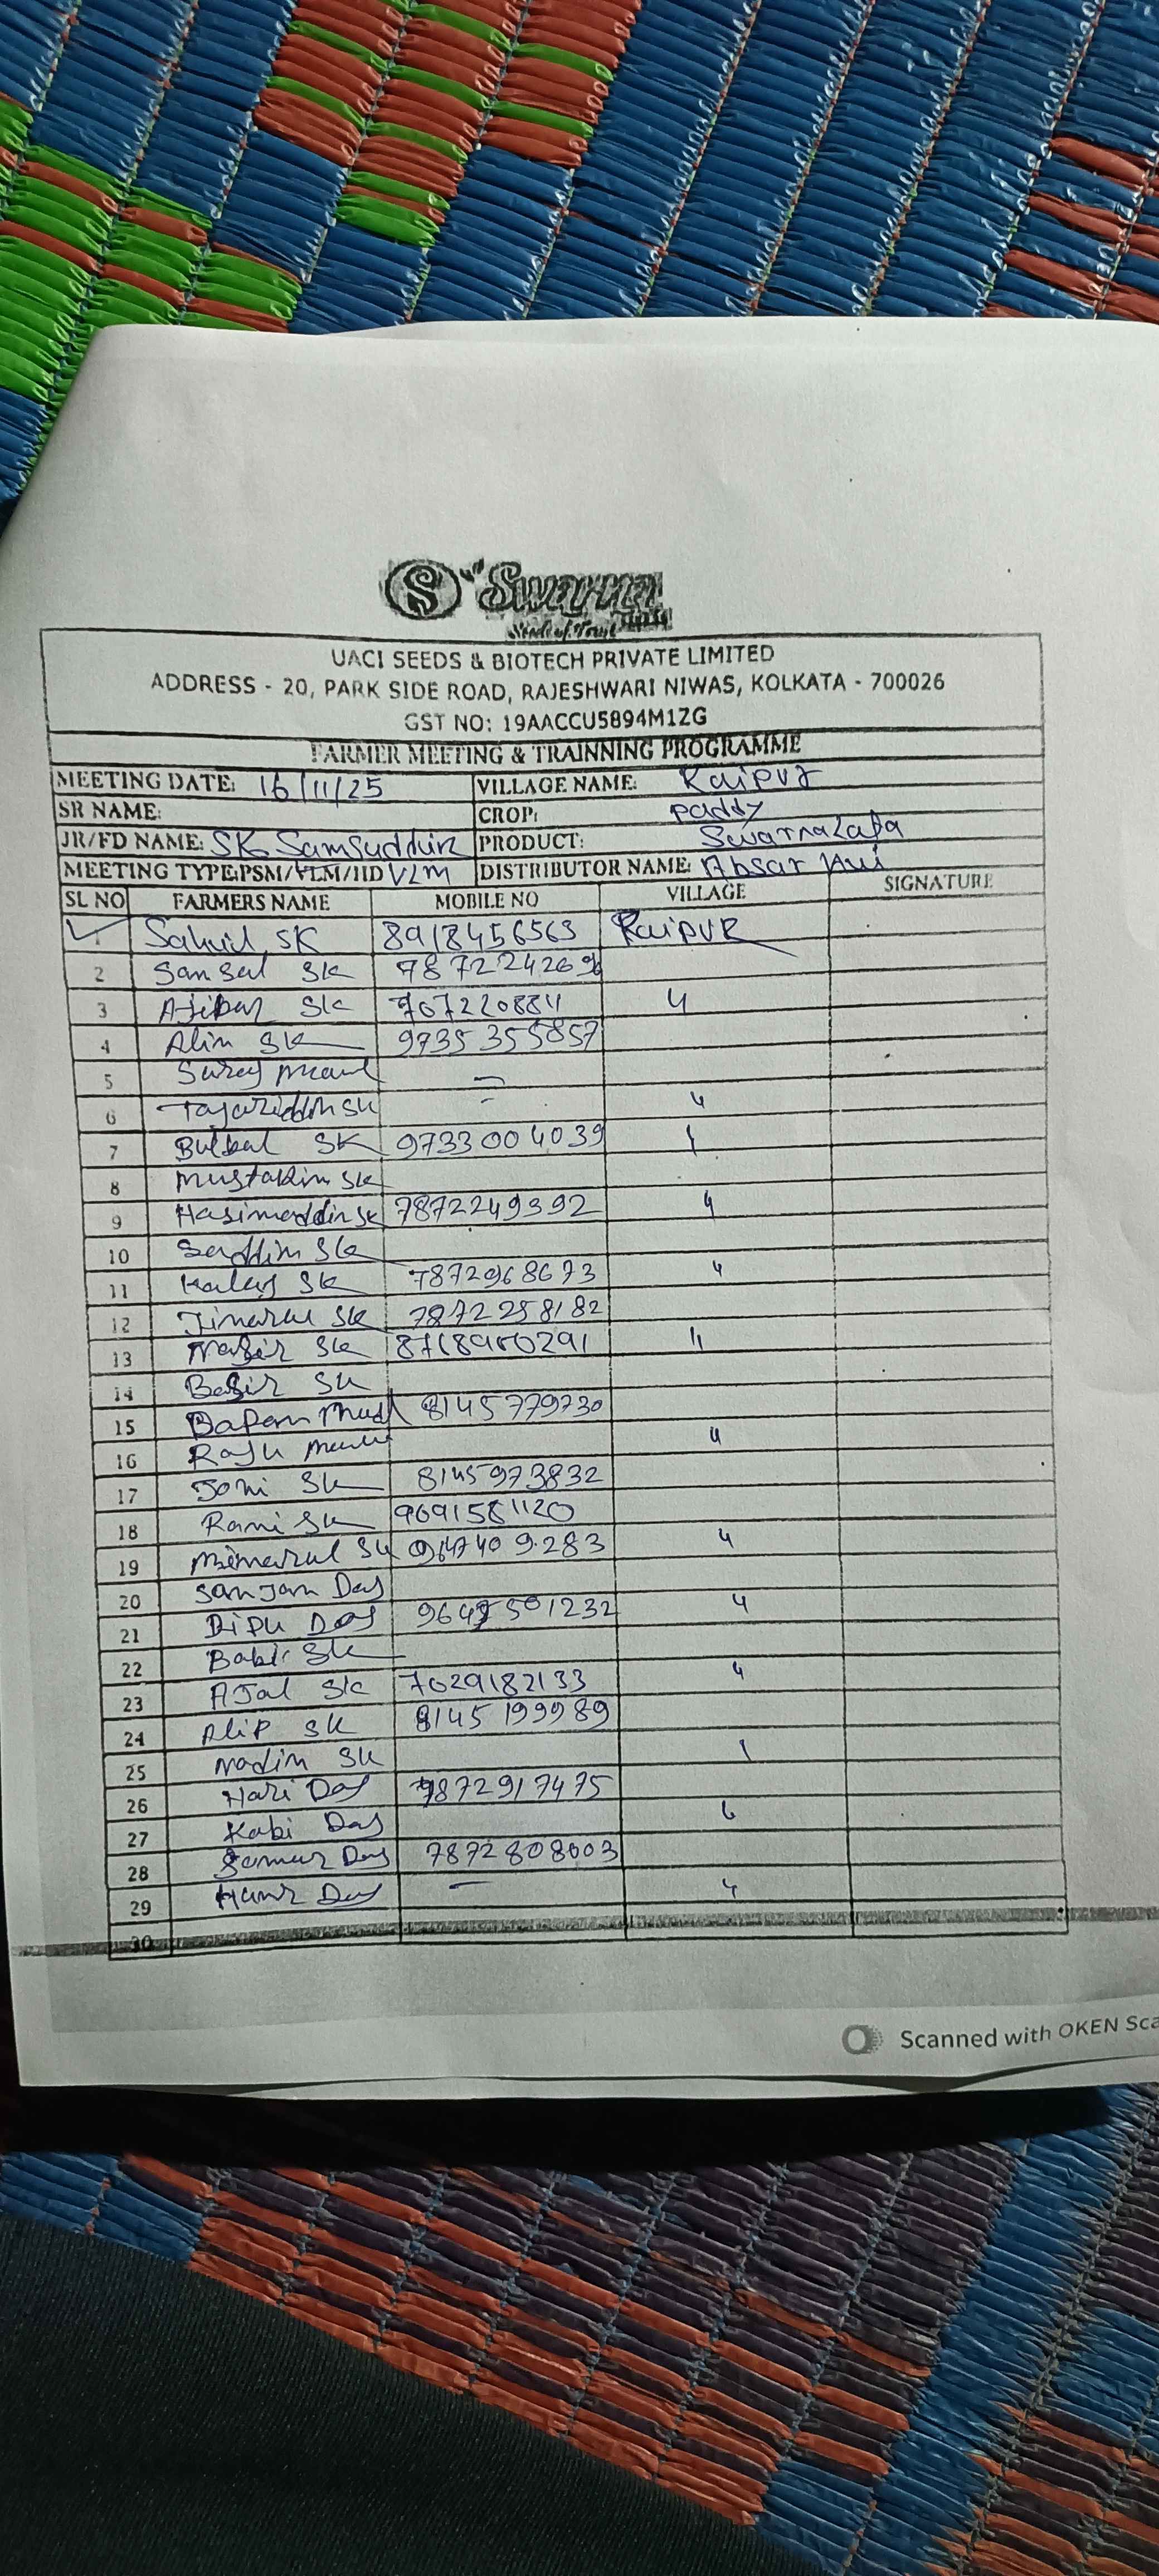 S "Swarna
UACI SEEDS & BIOTECH PRIVATE LIMITED
ADDRESS - 20, PARK SIDE ROAD, RAJESHWARI NIWAS, KOLKATA - 700026
GST NO: 19AACCU5894M1ZG
FARMER MEETING & TRAINNING PROGRAMME
MEETING DATE: 16/11/25 VILLAGE NAME: Raipur
SR NAME: CROP: paddy
JR/FD NAME: SK Samsuddin PRODUCT:
MEETING TYPE:PSM/VLM/IID VLM DISTRIBUTOR NAME: Absar
SL NO FARMERS NAME MOBILE NO VILLAGE SIGNATURE
1 Sahid SK 8918456563 Raipur
2 Samsul SK
3 SK 767220884 4
4 Alim SK 9735355857
5
6 SK - 4
7 Bulbul SK 9733004039
8 Mustakim SK
9 Hasimoddin SK 7872249392 4
10 SK
11 SK 7872968673 4
12 Jinarul SK 7872258182
13 Nasir SK 11
14 Basir SK
15 Bapan 8145779730
16 Raju 4
17 Joni SK 8145973832
18 Rami SK 9691581120
19 SK 4
20 Sanjan Das
21 Dipu Das 4
22 SK
23 AJal SK 7029182133 4
24 Alip SK 8145199989
25 Nadim SK
26 Hari Das 7872917475
27 Kabi Das
28 Samar Das 7872808603
29 Das - 4
30
Scanned with OKEN Sca